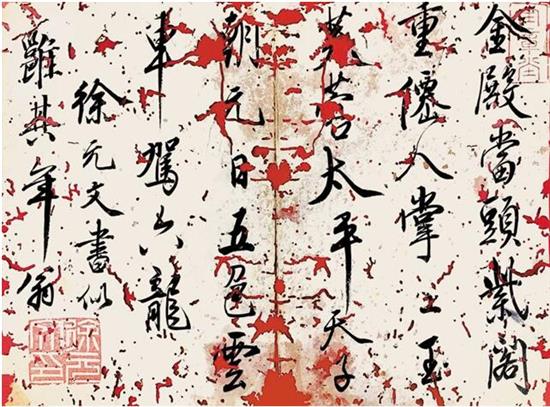 金殿當頭紫閣
重僊人掌上玉
芙蓉太平天子
朝元日五色雲
車駕六龍
徐元文書似
其年翁